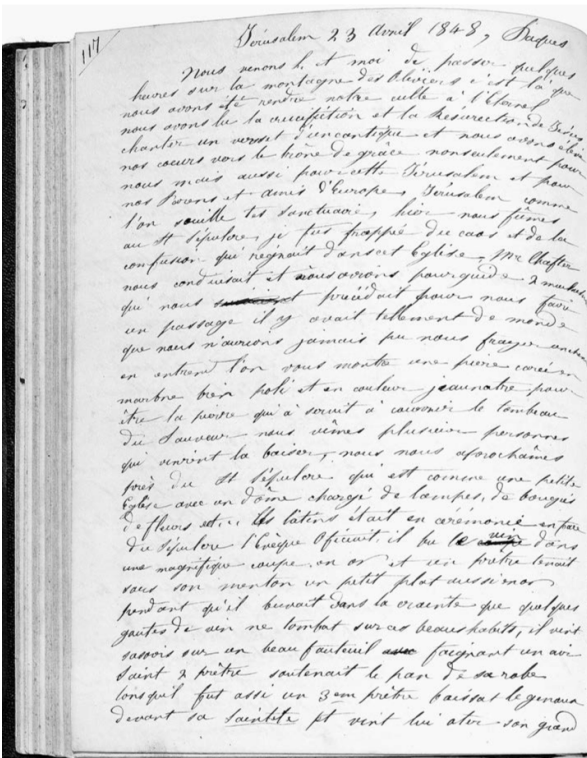 117
Jérusalem 23 Avril 1848, Pâques
Nous venons h. et moi de passer quelques
heures sur la montagne des Oliviers c'est là que
nous avons été rendre notre culte à l'Eternel
nous avons lu la crucifiction et la Resurection de Jésus
chanter un verset d'un cantique et nous avons élevé
nos cœurs vers le trône de grâce nonseulement pour
nous mais aussi pour cette Jérusalem et pour
nos Parens et amis d'Europe, Jérusalem comme
l'on souille tes sanctuaire, hier nous fûmes
au St Sépulcre, je fus frappée du caos et de la
confusion qui régnait dans cet Eglise, Mr
nous conduisait et nous avions pour guide 2
qui nous précédait pour nous faire
un passage il y avait tellement de monde
que nous n'aurions jamais pu nous frayer
en entrent l'on vous montre une pierre carée en
marbre bien poli et en couleur jeaunatre pour
être la pierre qui à servit a couvrir le tombeau
du Sauveur nous vîmes plusieur personnes
qui vinrent la baiser, nous nous aprochâmes
près du St Sépulcre qui est comme une petite
Eglise avec un dôme chargé de lampes, de bougies
de fleurs etc. les latins était en cérémonie en face
du Sépulcre l'Evêque Oficiait, il bu le vin dans
une magnifique coupe en or et un prêtre tenait
sous son menton un petit plat aussi en or
pendant qu'il buvait dans la crainte que quelques
goutes de vin ne tombat sur ces beaux habits, il vint
sasoir sur un beau fauteuil faignant un air
saint 2 prêtre soutenait le pan de sa robe
lorsqu'il fut assi un 3em prêtre baissat le genoux
devant sa sainteté et vint lui oter son grand